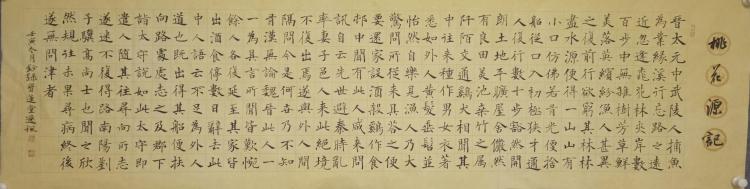 桃花源記
晉太元中武陵人捕魚
為業緣溪行忘路之遠
近忽逢桃花林夾岸數
百步中無雜樹芳草鮮
美落英繽紛漁人甚異
之復前行欲窮其林林
盡水源便得一山山有
小口仿佛若有光便捨
船從口入初極狹才通
人復行數十步豁然開
朗土地平曠屋舍儼然
有良田美池桑竹之屬
阡陌交通雞犬相聞其
中往來種作男女衣著
悉如外人黃髮垂髫並
怡然自樂見漁人乃大
驚問所從來具答之便
要還家設酒殺雞作食
村中聞有此人咸來問
訊自云先世避秦時亂
率妻子邑人來此絕境
不復出焉遂與外人間
隔問今是何世乃不知
有漢無論魏晉此人一
一為具言所聞皆歎惋
餘人各復延至其家皆
出酒食停數日辭去此
中人語云不足為外人
道也既出得其船便扶
向路處處志之及郡下
詣太守說如此太守即
遣人隨其往尋向所志
遂迷不復得路南陽劉
子驥高尚士也聞之欣
然規往未果尋病終後
遂無問津者
壬寅冬月